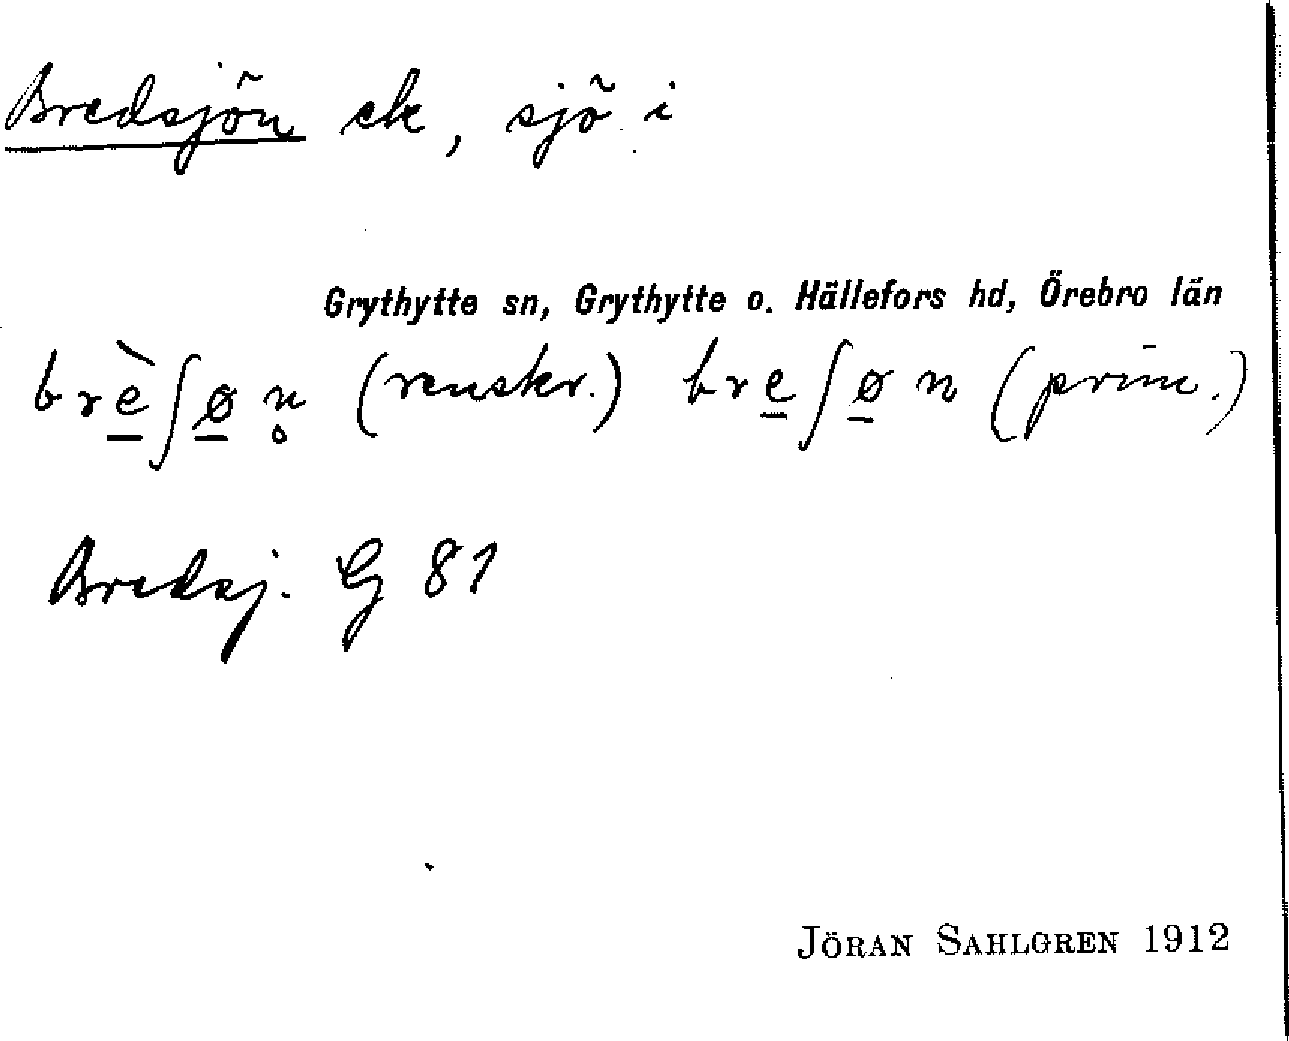 Bredsjön ek, sjö i
Grythytte sn, Grythytte o. Hällefors hd, Örebro län
brè̲ʃø̲n̥ (renskr.) bre̲ʃø̲n (prim.)
Bredsj. G 81
JÖRAN SAHLGREN 1912